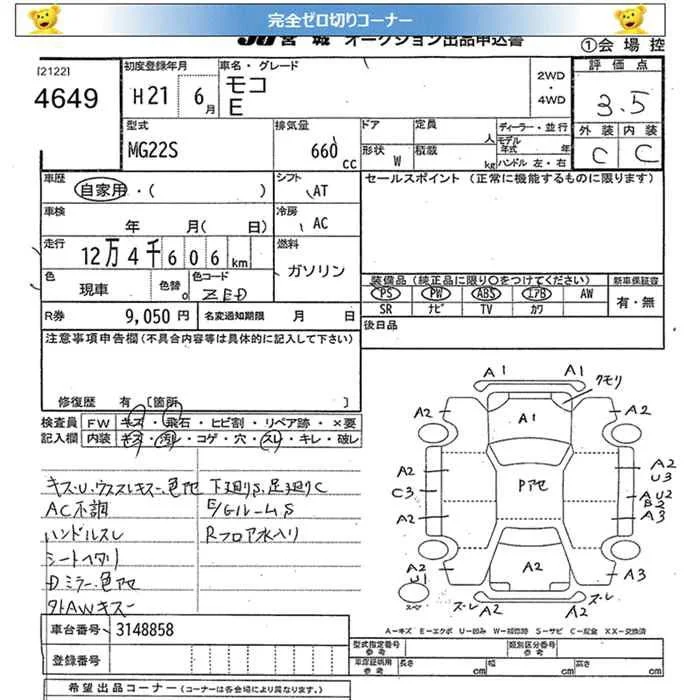 完全ゼロ切りコーナー
JU 宮城 オークション出品申込書
①会場控
[2122]
4649
初度登録年月
H21 6月
車名・グレード
モコ
E
2WD
・
4WD
評価点
3.5
外装 内装
C C
型式
MG22S
排気量
660 cc
ドア 定員 人
形状 W 積載 kg
ディーラー・並行
モデル年式 年
ハンドル 左・右
車歴
自家用・( )
シフト
AT
セールスポイント (正常に機能するものに限ります)
車検
年 月( 日)
冷房
AC
走行
12万4千606km
燃料
ガソリン
色
現車
色替
色コード
ZED
装備品(純正品に限り○をつけてください)
PS PW ABS エアB AW
SR ナビ TV カワ
新車保証書
有・無
R券 9,050円
名変通知期限 月 日
後日品
注意事項申告欄(不具合内容等は具体的に記入して下さい)
修復歴 有 [箇所 ]
検査員
記入欄
FW キズ・飛石・ヒビ割・リペア跡・×要
内装 キズ・汚レ・コゲ・穴・スレ・キレ・破レ
キズ・U・ウススレキズ・色アセ
AC不調
ハンドルスレ
シートヘタリ
Dミラー色アセ
外AWキズ
下廻りS、足廻りC
E/GルームS
Rフロア水入り
A1 A1 クモリ
A2 A1 A2
A2 Pアセ A2
U3
C3 A U2
B2
A2 A3
A2
U1 A2 A3
スレ A2 A2 スレ
A-キズ E-エクボ U-凹み W-補修跡 S-サビ C-腐食 XX-交換済
車台番号 3148858
登録番号
型式指定番号
参考
類別区分番号
参考
車庫証明用
参考
長さ cm 幅 cm 高さ cm
希望出品コーナー(コーナーは各会場により異なります。)